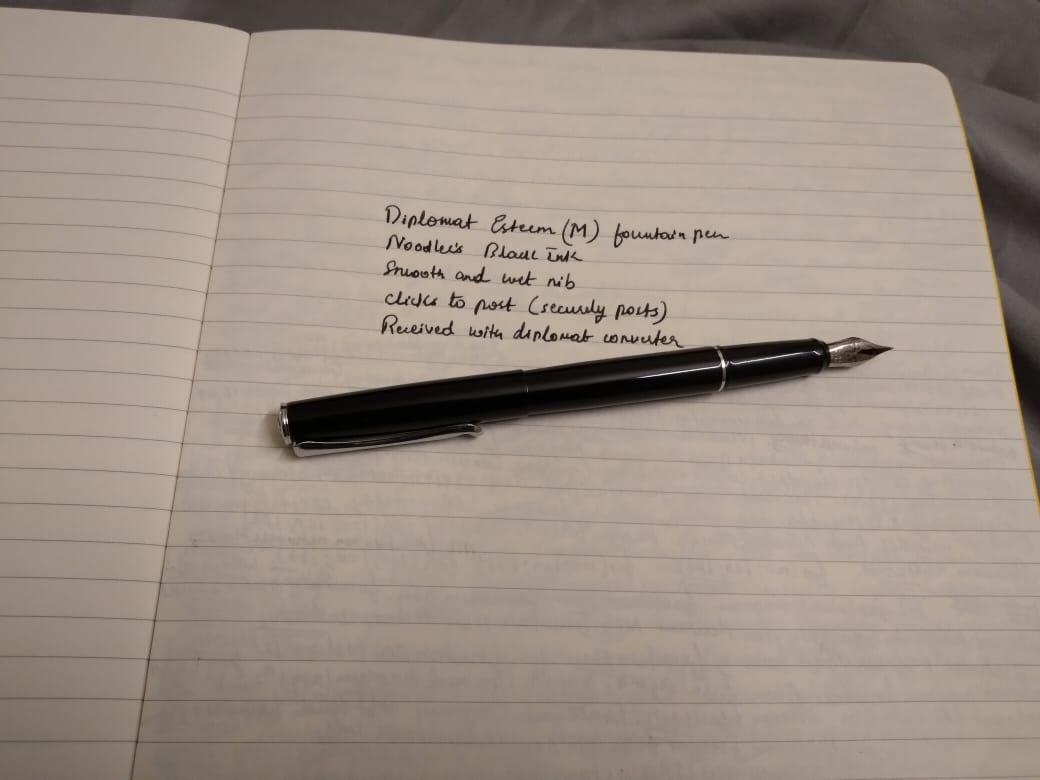 Diplomat Esteem (M) fountain pen
Noodler's Black Ink
Smooth and wet nib
clicks to post (securely posts)
Received with diplomat converter